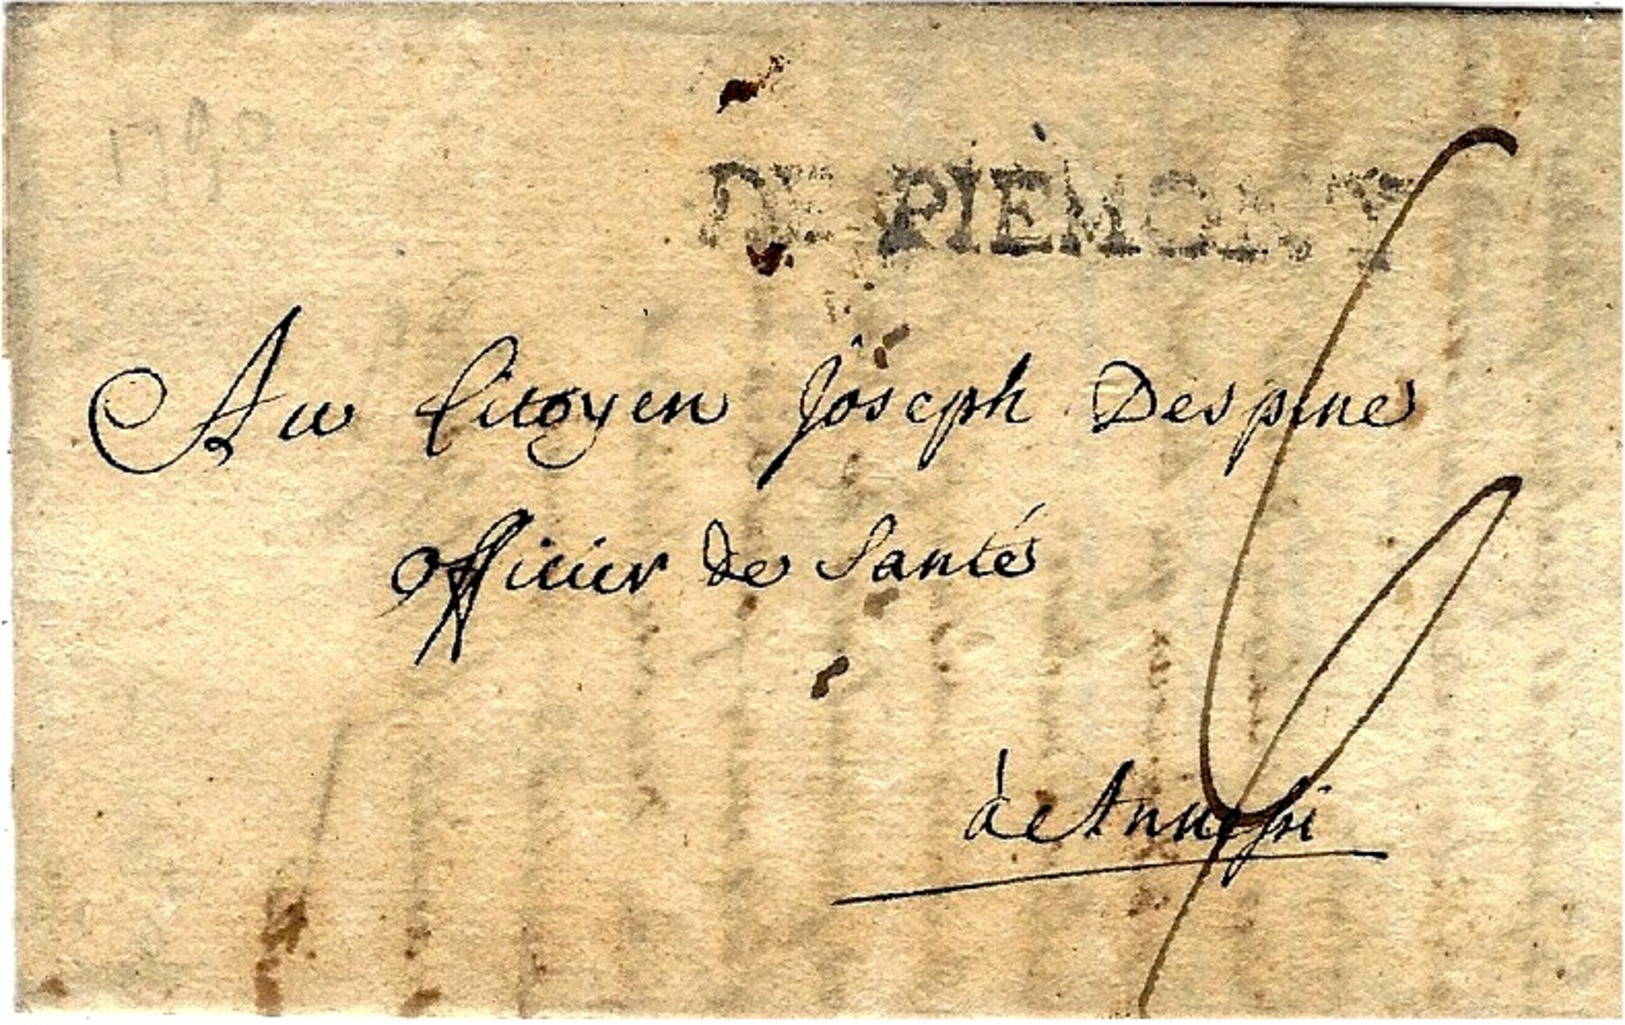 1790
DE PIEMONT
Au Citoyen Joseph Despine
Officier de Santé
à Annessi